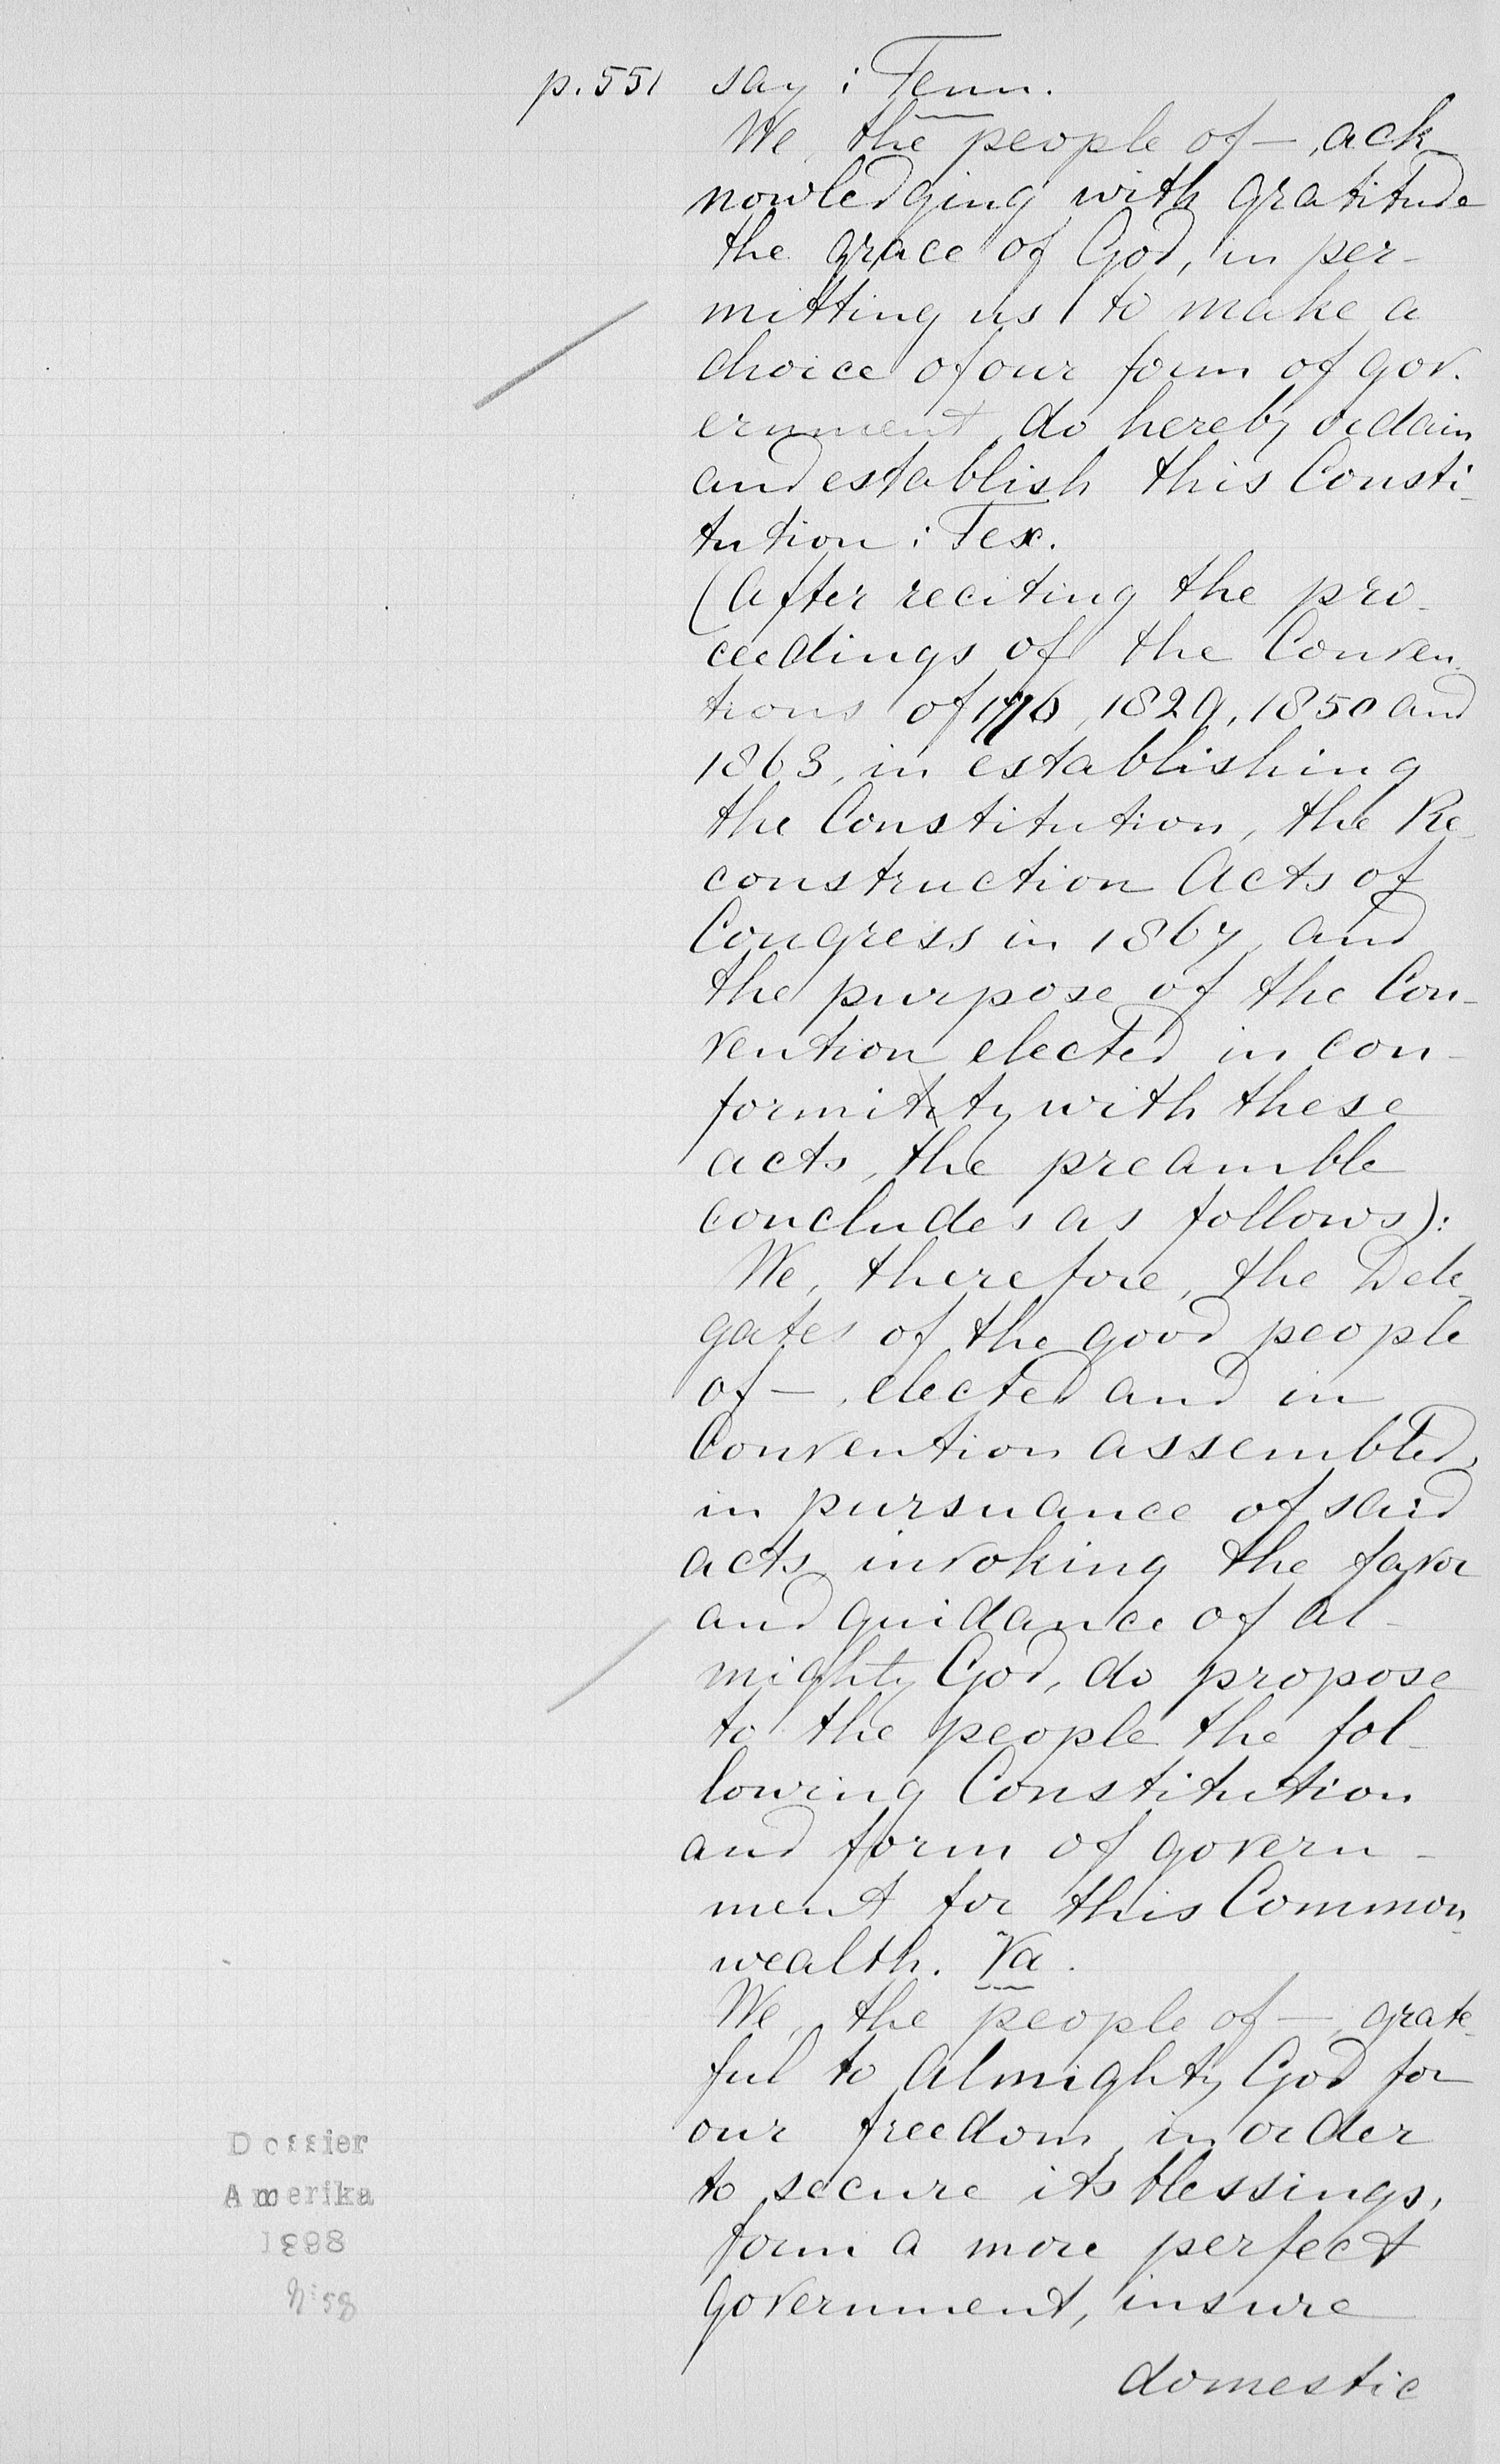 p. 551 say : Tenn.
We, the people of — , ack-
nowledging with gratitude
the grace of God, in per-
mitting us to make a
choice of our form of gov-
ernment, do hereby ordain
and establish this Consti-
tution : Tex.
(After reciting the pro-
ceedings of the Conven-
tions of 1776, 1829, 1850 and
1863, in establishing
the Constitution, the Re-
construction Acts of
Congress in 1867, and
the purpose of the Con-
vention elected in con-
formity with these
acts, the preamble
concludes as follows):
We, therefore, the Dele-
gates of the good people
of — , elected and in
Convention assembled,
in pursuance of said
acts, invoking the favor
and guidance of Al-
mighty God, do propose
to the people the fol-
lowing Constitution
and form of govern-
ment for this Common-
wealth. Va.
We, the people of — , grate-
ful to Almighty God for
our freedom, in order
to secure its blessings,
form a more perfect
government, insure
domestic
Dossier
Amerika
1898